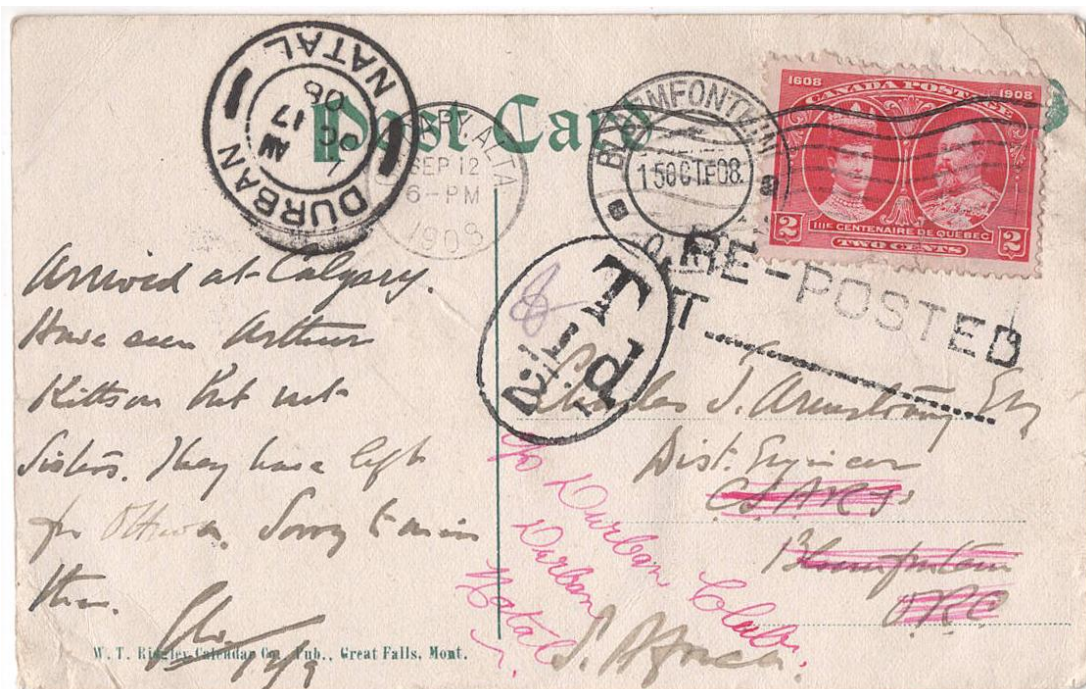 Post Card
DURBAN NATAL
AM
OC 17
08
CALGARY. ALTA
SEP 12
6-PM
1908
BLOEMFONTEIN
15 OCT. 08
O.R.C.
1608 1908
CANADA POSTAGE
IIIE CENTENAIRE DE QUEBEC
2 TWO CENTS 2
RE-POSTED
T
T
Arrived at Calgary.
Have seen Arthur
Kittson but not
Sisters. They have left
for Ottawa. Sorry to miss
them.
Charles J. Armstrong Esq
Dist. Engineer
C.S.A.R.
Bloemfontein
ORC
S. Africa.
c/o Durban Club.
Durban
Natal
W. T. Ridgley Calendar Co., Pub., Great Falls, Mont.